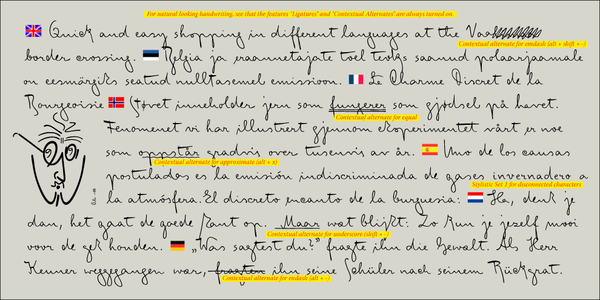 For natural looking handwriting, see that the features "Ligatures" and "Contextual Alternates" are always turned on.
Quick and easy shopping in different languages at the
Contextual alternate for emdash (alt + shift + -)
border crossing. Belgia ja eraannetajate toel teoks saanud polaarjaamale
on eesmärgiks seatud nulltasemel emissioon. Le Charme Discret de la
Bourgeoisie Støvet inneholder jern som fungerer som gjødsel på havet.
Contextual alternate for equal
Fenomenet vi har illustrert gjennom eksperimentet vårt er noe
som oppstår gradvis over tusenvis av år. Uno de los causas
Contextual alternate for approximate (alt + x)
postulados es la emisión indiscriminada de gases invernadero a
Stylistic Set 1 for disconnected characters
la atmósfera. El discreto encanto de la burguesia: Ha, denk je
dan, het gaat de goede kant op. Maar wat blijkt: Zo kun je jezelf mooi
Contextual alternate for underscore (shift + -)
voor de gek houden. „Was sagtest du?" fragte ihn die Gewalt. Als Herr
Keuner weggegangen war, fragten ihn seine Schüler nach seinem Rückgrat.
Contextual alternate for endash (alt + -)